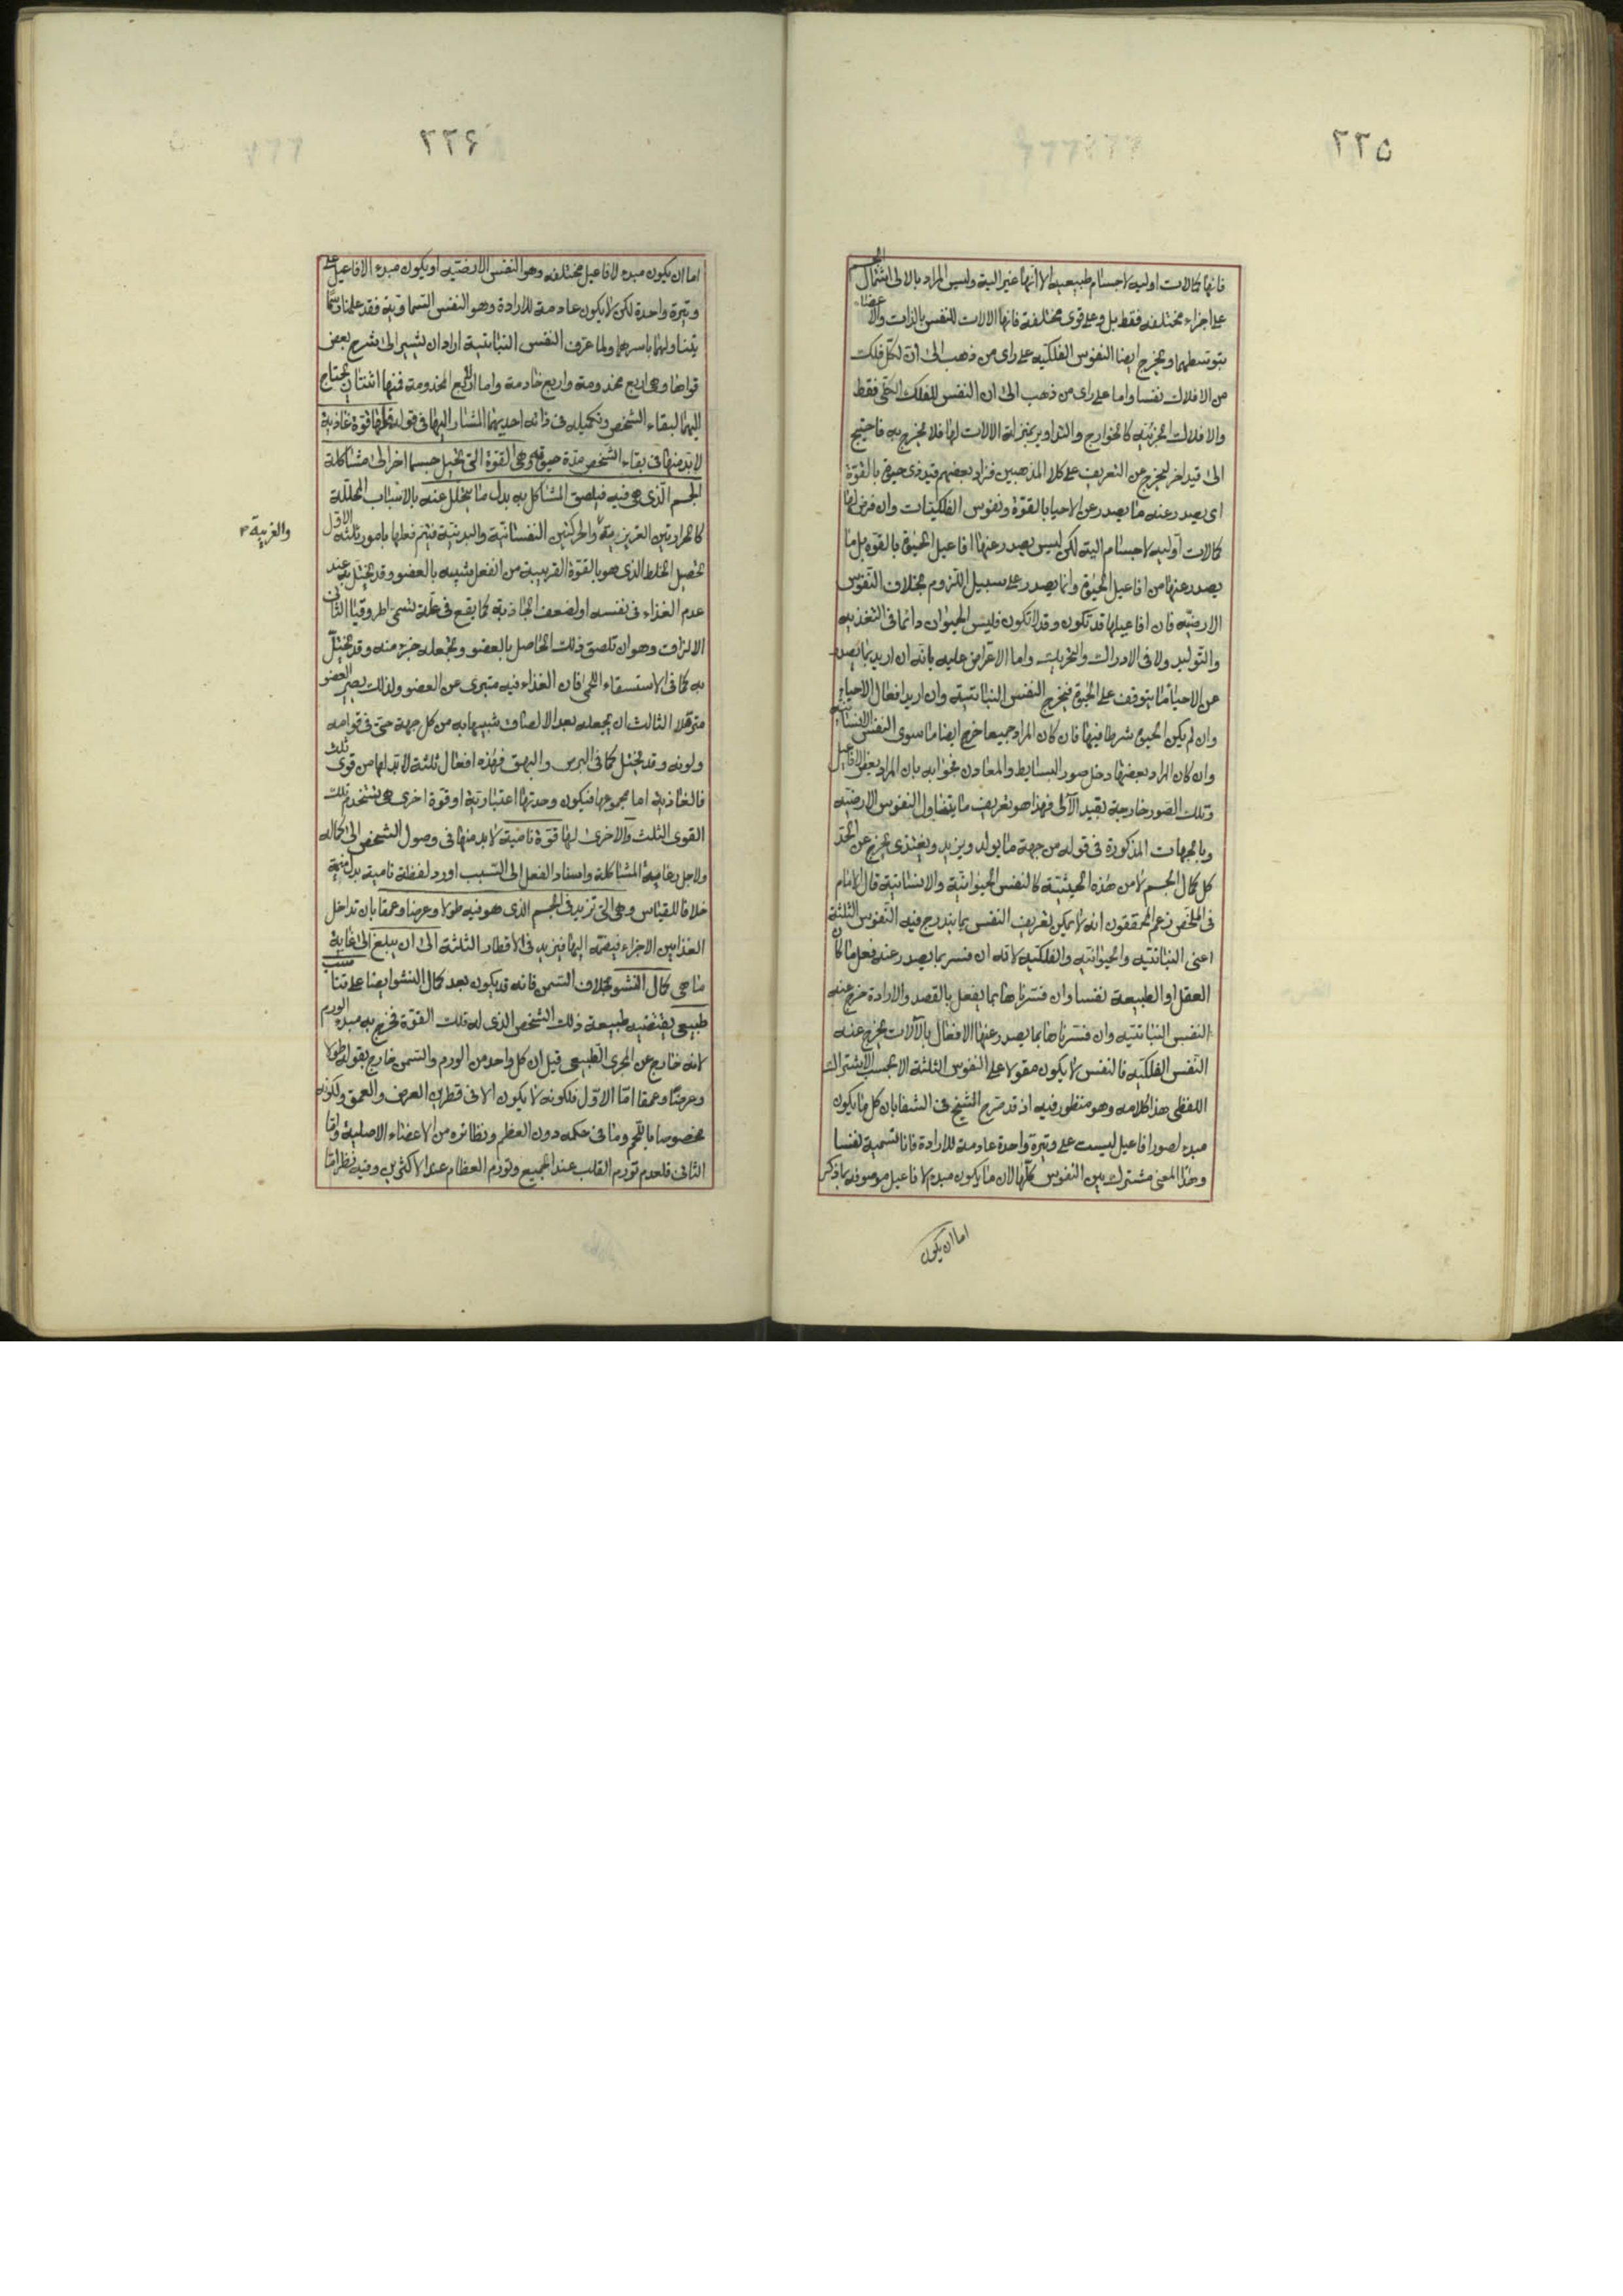 ٢٢٥
فانها كمالات اولية لاجسام طبيعية الا انها غير الية وليس المراد بالالى اشتمال الجسم
على اجزاء مختلفة فقط بل وعلى قوى مختلفة فانها الالات للنفس بالذات والاعضاء
بتوسطهما ويخرج ايضا النفوس الفلكية على راى من ذهب الى ان لكل فلك
من الافلاك نفسا واما على راى من ذهب الى ان النفس للفلك الكلى فقط
والافلاك الجزئية كالخوارج والتداوير بمنزلة الالات لها فلا يخرج به فاحتيج
الى قيد اخر ليخرج عن التعريف على كلا المذهبين فزاد بعضهم قيد ذى حيوة بالقوة
اى يصدر عنه ما يصدر عن الاحيا بالقوة ونفوس الفلكيات وان فرض انها
كمالات اولية لاجسام الية لكن ليس يصدر عنها افاعيل الحيوة بالقوة بل ما
يصدر عنها من افاعيل الحيوة وانما يصدر على سبيل اللزوم بخلاف النفوس
الارضية فان افاعيلها قد تكون وقد لا تكون فليس الحيوان دائما فى التغذية
والتوليد ولا فى الادراك والتحريك واما الاعتراض عليه بانه ان اريد بما يصدر
عن الاحيا ما يتوقف على الحيوة فيخرج النفس النباتية وان اريد افعال الاحياء
وان لم يكن الحيوة شرطا فيها فان كان المراد جميعا خرج ايضا ما سوى النفس الانسانية
وان كان المراد بعضها دخل صور البسايط والمعادن فجوابه بان المراد بعض الافاعيل
وتلك الصور خارجة بقيد الآلى فهذا هو تعريف ما يتناول النفوس الارضية
وبالجهات المذكورة فى قوله من جهة ما يولد ويزيد ويغتذى يخرج عن الحد
كل كمال الجسم لا من هذه الحيثية كالنفس الحيوانية والانسانية قال الامام
فى الملخص زعم المحققون انه لا يمكن تعريف النفس بما يندرج فيه النفوس الثلثة
اعنى النباتية والحيوانية والفلكية لانه ان فسر بما يصدر عنه فعل ما كان
العقل او الطبيعة نفسا وان فسرناها بما يفعل بالقصد والارادة خرج عنه
النفس النباتية وان فسرناها بما يصدر عنها الافعال بالآلات يخرج عنه
النفس الفلكية فالنفس لا يكون مقولا على النفوس الثلثة الا بحسب الاشتراك
اللفظى هذا كلامه وهو منظور فيه اذ قد صرح الشيخ فى الشفا بان كل ما يكون
مبدء لصور افاعيل ليست على وتيرة واحدة عادمة للارادة فانا نسميه نفسا
وهذا المعنى مشترك بين النفوس كلها لان ما يكون مبدء لافاعيل موصوفة بما ذكر
اما ان يكون
٢٢٦
اما ان يكون مبدء لافاعيل مختلفة وهو النفس الارضية او يكون مبدء الافاعيل على
وتيرة واحدة لكن لا يكون عادمة للارادة وهو النفس السماوية فقد علمنا رسما
يتناولهما باسرهما ولما عرف النفس النباتية اراد ان يشير الى شرح بعض
قواها وهى اربع مخدومة واربع خادمة واما الاربع المخدومة فمنها اثنتان يحتاج
اليهما لبقاء الشخص وتكميله فى ذاته احديهما المشار اليها فى قوله فلها قوة غاذية
لا بد منها فى بقاء الشخص مدة حيوته وهى القوة التى تحيل جسما اخر الى مشاكلة
الجسم الذى هى فيه فيلصق المشاكل به بدل ما يتحلل عنه بالاسباب المحللة
كالحرارتين الغريزية والحركتين النفسانية والبدنية فيتم فعلها بامور ثلثة الاول
والغريبة
تحصيل الخلط الذى هو بالقوة القريبة من الفعل شبيه بالعضو وقد يختل به عند
عدم الغذاء فى نفسه او لضعف الجاذبة كما يقع فى علة تسمى اطروقيا الثانى
الالزاق وهو ان تلصق ذلك الحاصل بالعضو وتجعله جزء منه وقد يختل
به كما فى الاستسقاء اللحمى فان الغذاء فيه متبرى عن العضو ولذلك يصير العضو
مترهلا الثالث ان يجعله بعد الالصاق شبيها به من كل جهة حتى فى قوامه
ولونه وقد يختل كما فى البرص والبهق فهذه افعال ثلثة لا بد لها من قوى ثلث
فالغاذية اما مجموعها فيكون وحدتها اعتبارية او قوة اخرى هى تستخدم تلك
القوى الثلث والاخرى لها قوة نامية لا بد منها فى وصول الشخص الى كماله
ولاجل رعاية المشاكلة واسناد الفعل الى السبب اورد لفظة نامية بدل منمية
خلافا للقياس وهى التى تزيد فى الجسم الذى هو فيه طولا وعرضا وعمقا بان تداخل
الغذا بين الاجزاء فيضمه اليها فيزيد فى الاقطار الثلثة الى ان يبلغ الى غاية
ما هى كمال النشو بخلاف السمن فانه قد يكون بعد كمال النشو ايضا على تناسب
طبيعى يقتضيه طبيعة ذلك الشخص الذى له تلك القوة فخرج به مبدء الورم
لانه خارج عن المجرى الطبيعى قيل ان كل واحد من الورم والسمن خارج بقوله طولا
وعرضا وعمقا اما الاول فلكونه لا يكون الا فى قطرين العرض والعمق ولكونه
مخصوصا باللحم وما فى حكمه دون العظم ونظائره من الاعضاء الاصلية واما
الثانى فلعدم تورم القلب عند الجميع وتورم العظام عند الاكثرين وفيه نظر اما